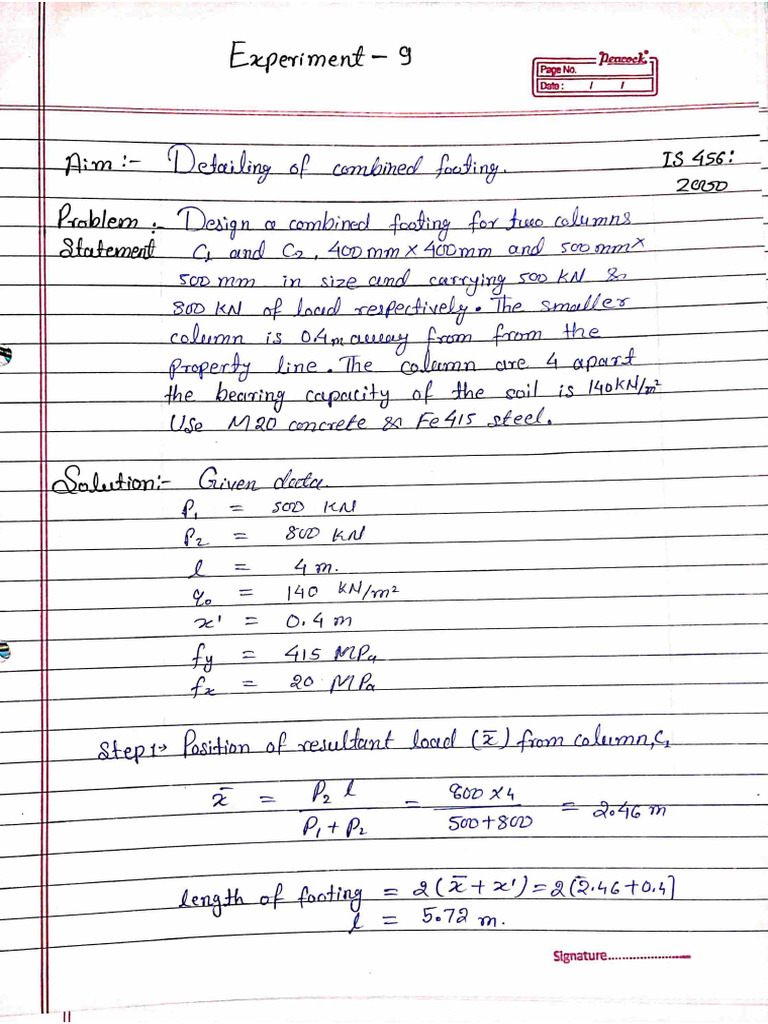 Experiment - 9
Peacock
Page No.
Date : / /
Aim :- Detailing of combined footing. IS 456:
2000
Problem :- Design a combined footing for two columns
Statement C1 and C2, 400mm × 400mm and 500mm×
500mm in size and carrying 500 KN &
800 KN of load respectively. The smaller
column is 0.4m away from from the
property line. The column are 4 apart
the bearing capacity of the soil is 140KN/m²
Use M20 concrete & Fe415 steel.
Solution:- Given data
P1 = 500 KN
P2 = 800 KN
l = 4 m.
q0 = 140 KN/m²
x' = 0.4 m
fy = 415 MPa
fx = 20 MPa
Step1→ Position of resultant load (x̄) from column, C1
x̄ = P2 l / P1 + P2 = 800 × 4 / 500 + 800 = 2.46 m
length of footing = 2(x̄ + x') = 2(2.46+0.4]
l = 5.72 m.
Signature........................